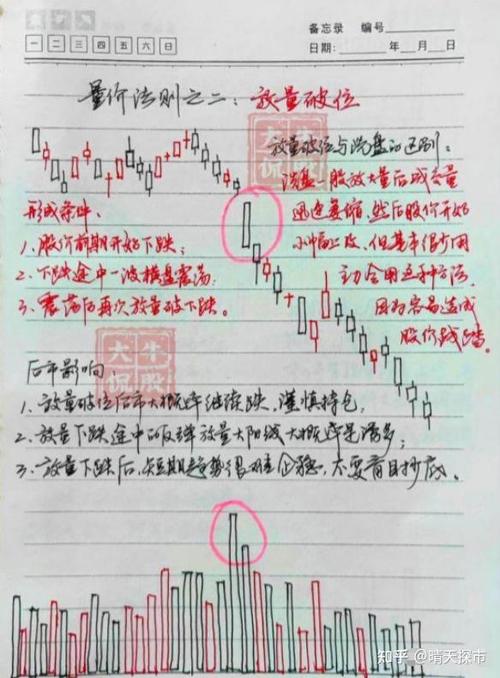 备忘录 编号
一 二 三 四 五 六 日
日期: 年 月 日
量价法则之二：放量破位
大牛
侃股
放量破位与洗盘的区别：
洗盘一般放大量后成交量
迅速萎缩，然后股价开始
小幅上攻，但基本很少用
主力会用这种方法，
因为容易造成
股价践踏。
形成条件：
1、股价前期开始下跌；
2、下跌途中一波横盘震荡；
3、震荡后再次放量破下跌。
大牛
侃股
后市影响：
1、放量破位后市大概率继续跌，谨慎持仓，
2、放量下跌途中的反弹放量大阳线大概率是诱多；
3、放量下跌后，短期趋势很难企稳，不要盲目抄底。
知乎 @晴天探市